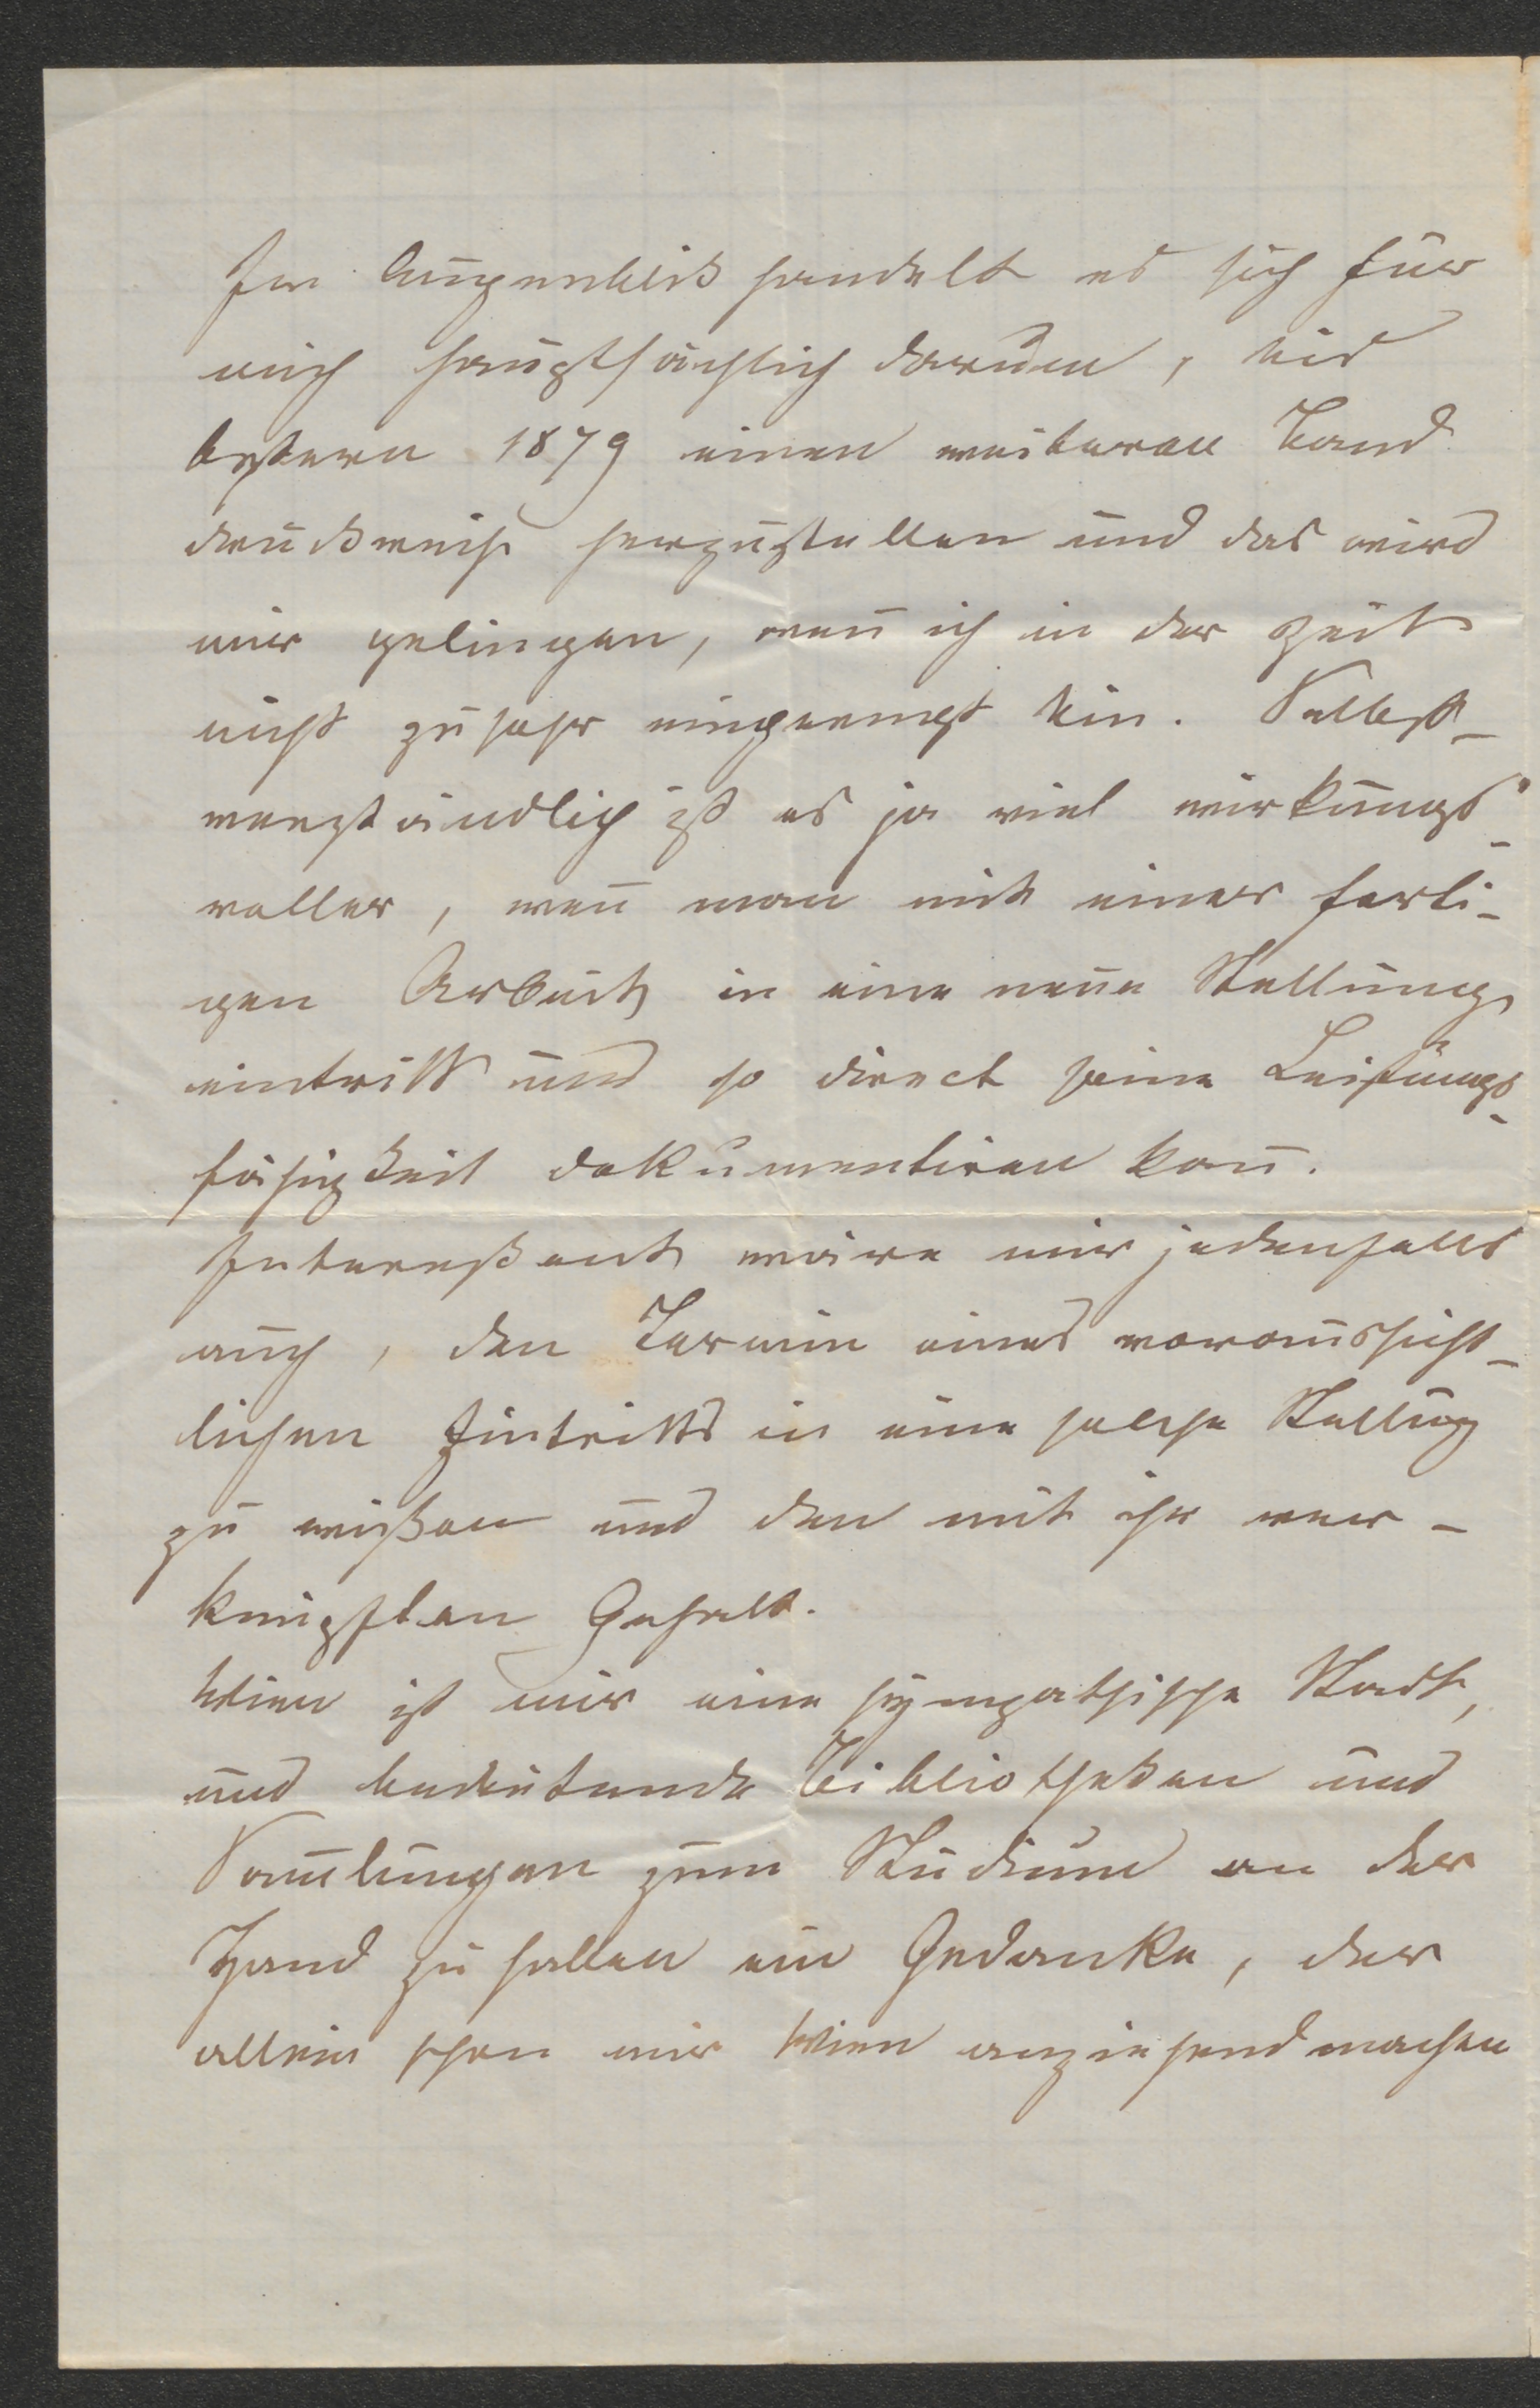 Im Augenblick handelt es sich für
mich hauptsächlich darum, bis
Ostern 1879 einen weiteren Band
druckreif herzustellen und das wird
mir gelingen, wen̄ ich in der Zeit
nicht zu sehr eingeengt bin. Selbst-
verständlich ist es ja viel wirkungs-
voller, wen̄ man mit einer ferti-
gen Arbeit in eine neue Stellung
eintritt und so direct seine Leistungs-
fähigkeit dokumentiren kan̄.
Intereßant wäre mir jedenfalls
auch, den Termin eines voraussicht-
lichen Eintritts in eine solche Stellung
zu wißen und den mit ihr ver-
knüpften Gehalt.
Wien ist mir eine sympathische Stadt,
und bedeutende Bibliotheken und
Sam̄lungen zum Studium an der
Hand zu haben ein Gedanke, der
allein schon mir Wien anziehend machen